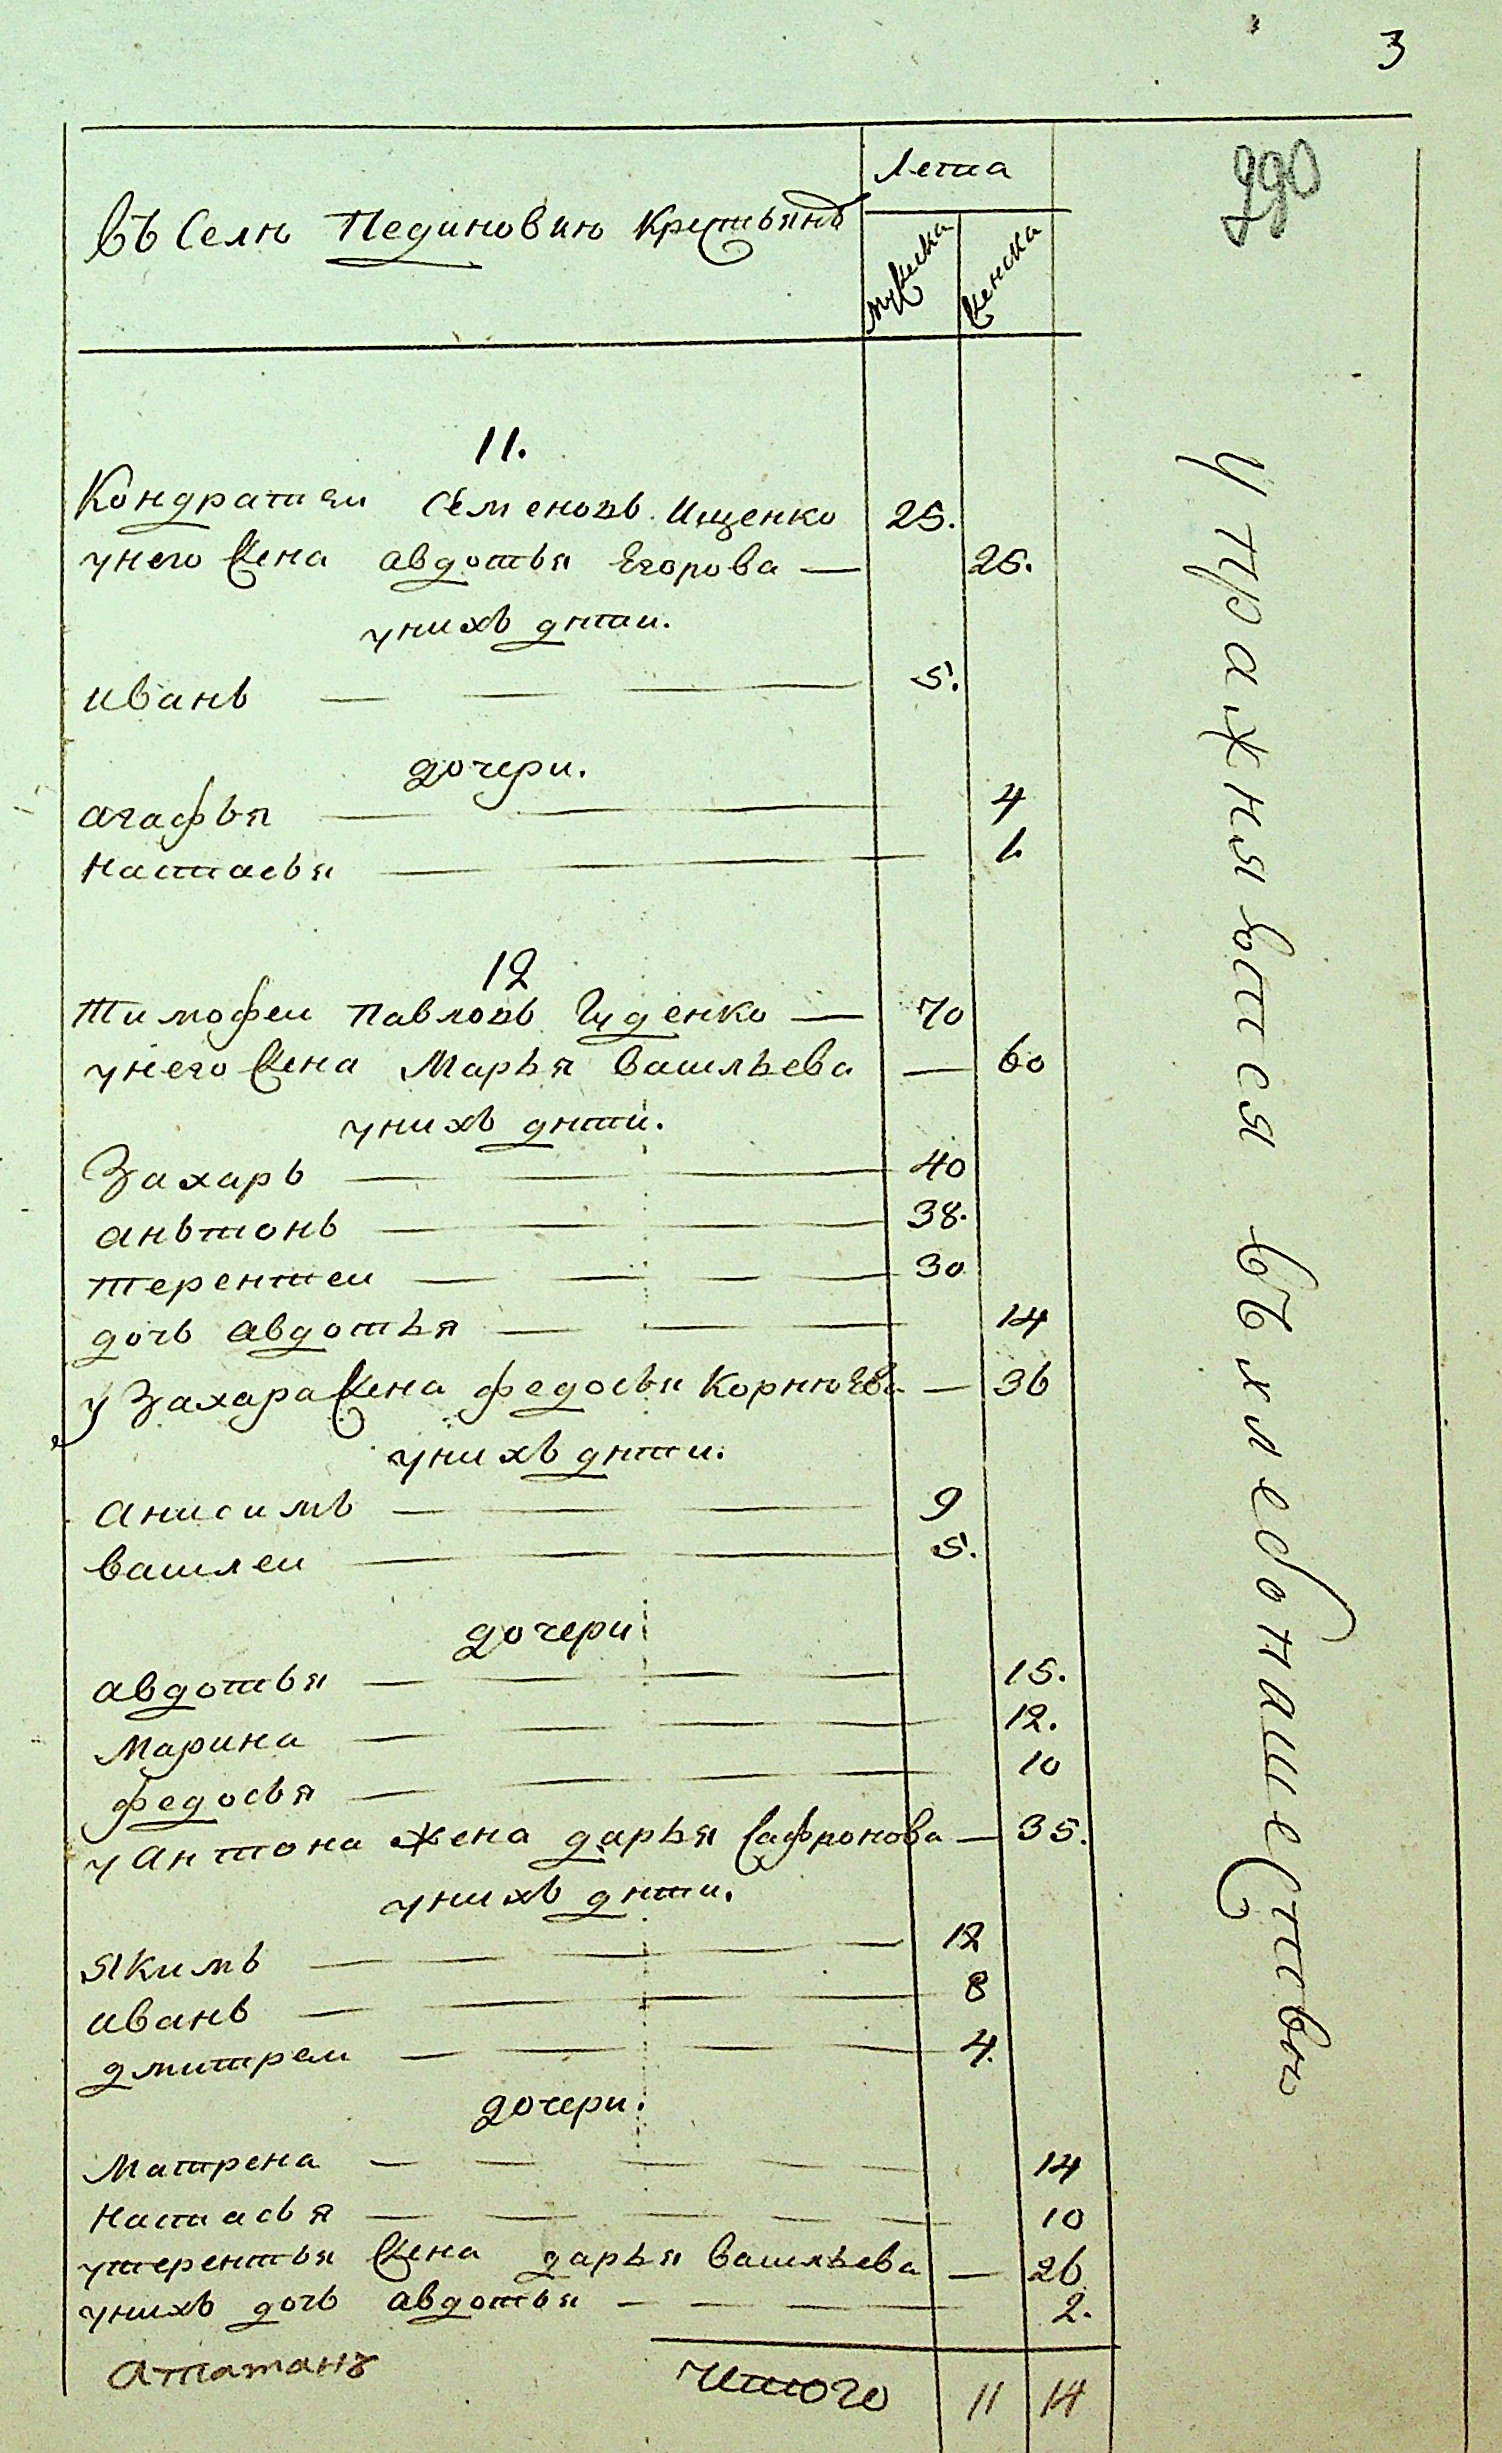 3
990
въ Селѣ Пединовкѣ Крестьянъ
Лета
мужеска
женска
11.
Кондратеи Семеновъ Ищенко 25.
унего жена авдотья Егорова — 25.
унихъ дѣти.
иванъ — — — 5.
дочери.
агафья — — 4
настасья — — 1.
12
Тимофеи Павловъ Гуденко — 70
унего жена Марья Васильева — 60
унихъ дѣти.
Захаръ — — 40
аньтонъ — — — 38.
терентеи — — — — 30
дочь авдотья — — — 14
у Захара жена федосья Корнюева — 36
унихъ дѣти.
анисимъ — — — 9
василеи — — — 5.
дочери
авдотья — — — — 15.
Марина — — — — 12.
федосья — — — — 10
у антона жена дарья Сафронова — 35.
унихъ дѣти.
якимъ — — — — 12
иванъ — — — — 8
дмитреи — — — — 4.
дочери.
Матрена — — — — — 14
настасья — — — — — 10
утерентья жена дарья Васильева — 26
унихъ дочь авдотья — — — — 2.
Атаманъ
итого 11 14
упражняются въ хлебопашествѣ